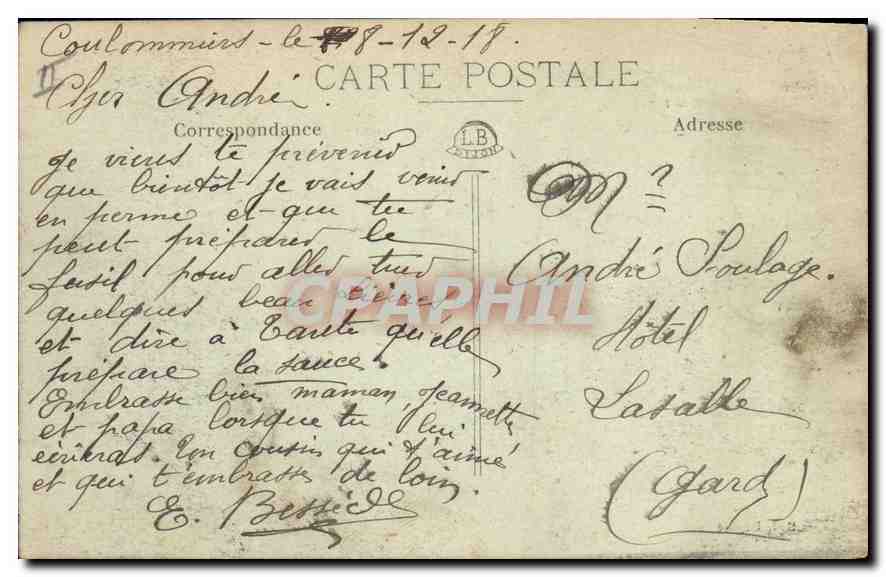 Coulommiers - le 8-12-18.
II
CARTE POSTALE
Cher André.
Correspondance
LB
DIJON
Adresse
Je viens te prévenir
que bientôt je vais venir
en perme et que tu
peut préparer le
fusil pour aller tuer
quelques beau lièvres
et dire à Tante qu'elle
prépare la sauce.
Embrasse bien maman, Jeannette
et papa lorsque tu lui
écriras. Ton cousin qui t'aime
et qui t'embrasse de loin.
E.
Mr
André Soulage.
Hôtel
Lasalle
(Gard)
CPAPHIL